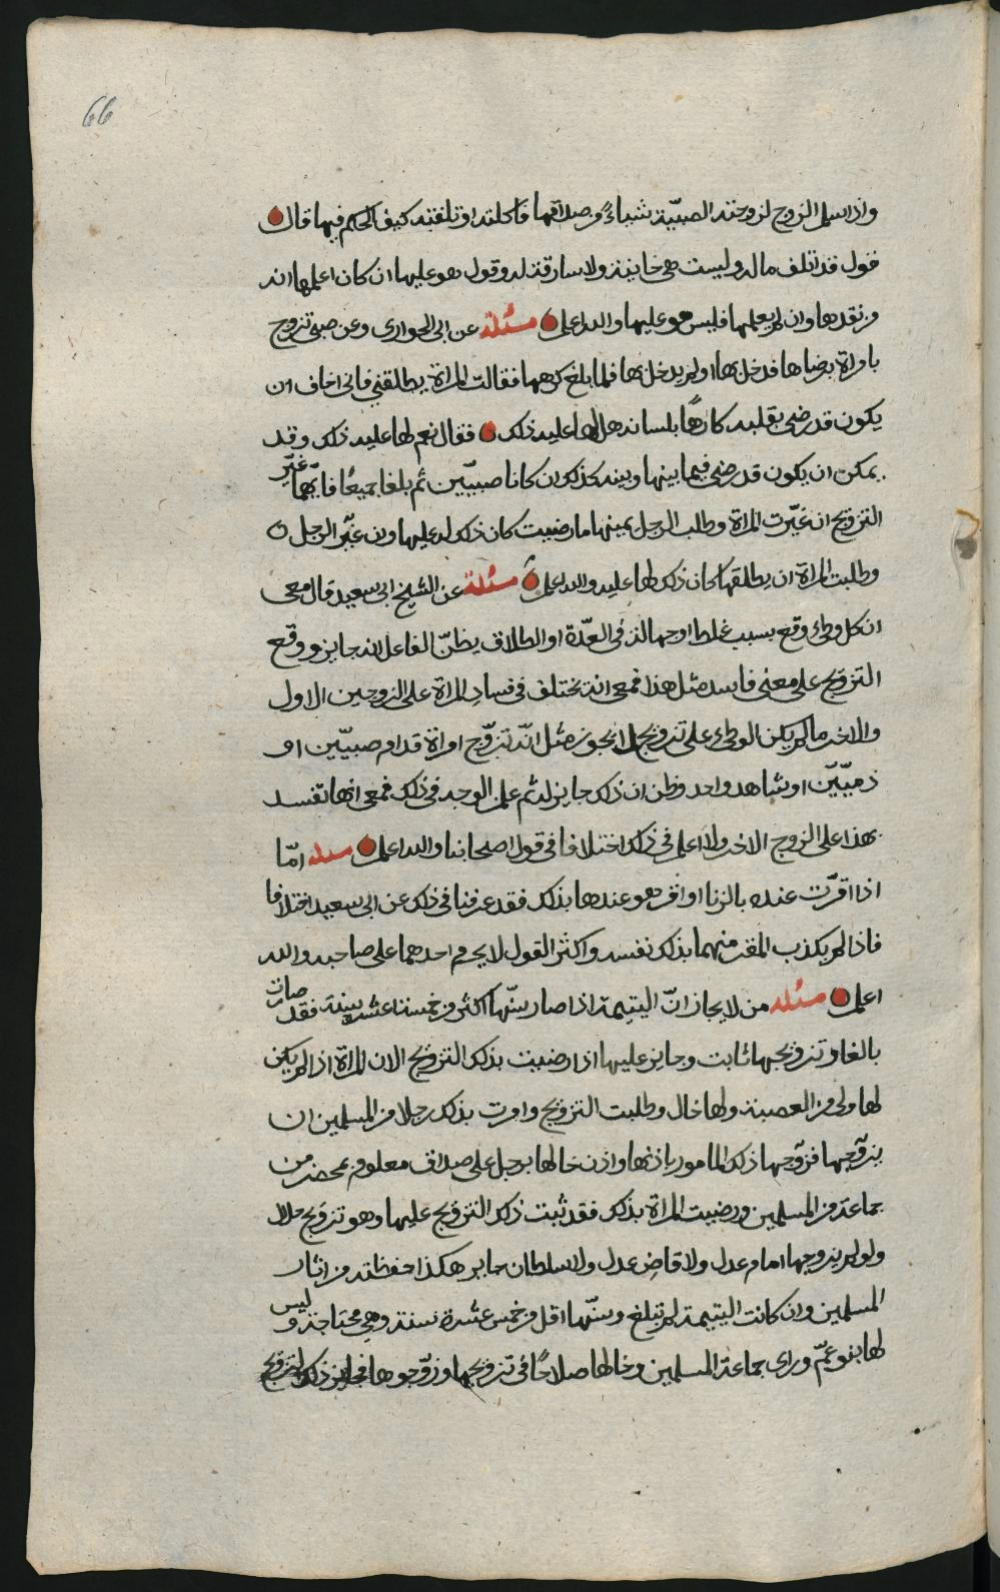 66
واذا سلم الزوج لزوجته الصبيّة شياءً من صداقها فاكلته او تلفته كيف الحكم فيها قال
فول قد اتلف ماله وليست هي خاينة ولا سارقة له وقول هو عليها ان كان اعلمها انه
من نقدها وان لم يعلمها فليس هو عليها والله اعلم مسئلة عن ابى الحوارى وعن صبى تزوج
بامراة برضاها فدخل بها او لم يدخل بها فلما بلغ كرهها فقالت المراة يطلقني فانى اخاف ان
يكون قد رضى بقلبه كارهًا بلسانه هل لها عليه ذلك فقال نعم لها عليه ذلك وقد
يمكن ان يكون قد رضى فيما بينها وبينه كذلك ان كانا صبيّين ثم بلغا جميعًا فايّهما غيّر
التزويج ان غيّرت المراة وطلب الرجل يمينها ما رضيت كان ذلك له عليها وان غيّر الرجل
وطلبت المراة ان يطلقها كان ذلك لها عليه والله اعلم مسئلة عن الشيخ ابى سعيد قال معى
ان كل وطئ وقع بسبب غلط او جهالة فى العدّة او الطلاق يظنّ الفاعل انه جايز ووقع
التزويج على معنى فاسد مثل هذا فمعى انه يختلف فى فساد المراة على الزوجين الاول
والاخر ما لم يكن الوطئ على تزويج لا يجوز مثل انّه تزوّج امراة قدام صبيّين او
ذميّيّن او شاهد واحد وظن ان ذلك جايز له ثم علم الوجه فى ذلك فمعى انها تفسد
بهذا على الزوج الاخر ولا اعلم فى ذلك اختلافا فى قول اصحابنا والله اعلم مسئله امّا
اذا اقرّت عنده بالزنا او اقر هو عندها بذلك فقد عرفنا فى ذلك عن ابى سعيد اختلافا
فاذا لم يكذب المقر منهما بذلك نفسه واكثر القول لا يحرم احدهما على صاحبه والله
اعلم مسئله من لا يجاز انّ اليتيمة اذا صار سنّها اكثر من خمسة عشر سنة فقد صارت
بالغا وتزويجها ثابت وجايز عليها اذا رضيت بذلك التزويج الان المراة اذا لم يكن
لها ولى من العصبة ولها خال وطلبت التزويج وامرت بذلك رجلا من المسلمين ان
يزوّجها فزوّجها ذلك المامور باذنها واذن خالها برجل على صداق معلوم بمحضر من
جماعة من المسلمين ورضيت المراة بذلك فقد ثبت ذلك التزويج عليها وهو تزويج حلال
ولو لم يزوجها امام عدل ولا قاضٍ عدل ولا سلطان جاير هكذا حفظته من اثار
المسلمين وان كانت اليتيمة لم تبلغ وسنّها اقل من خمس عشرة سنة وهي محتاجة وليس
لها بنو عمّ وراى جماعة المسلمين وخالها صلاحًا فى تزويجها وزوّجوها فجايز ذلك التزويج